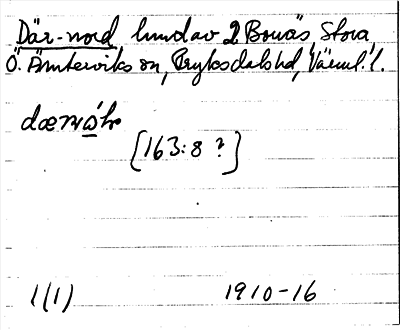 Där-nord hmd av 2 Bonäs Stora,
Ö. Ämterviks sn, Fryksdals hd, Värml. l.
[163:8 ?]
1(1) 1910-16